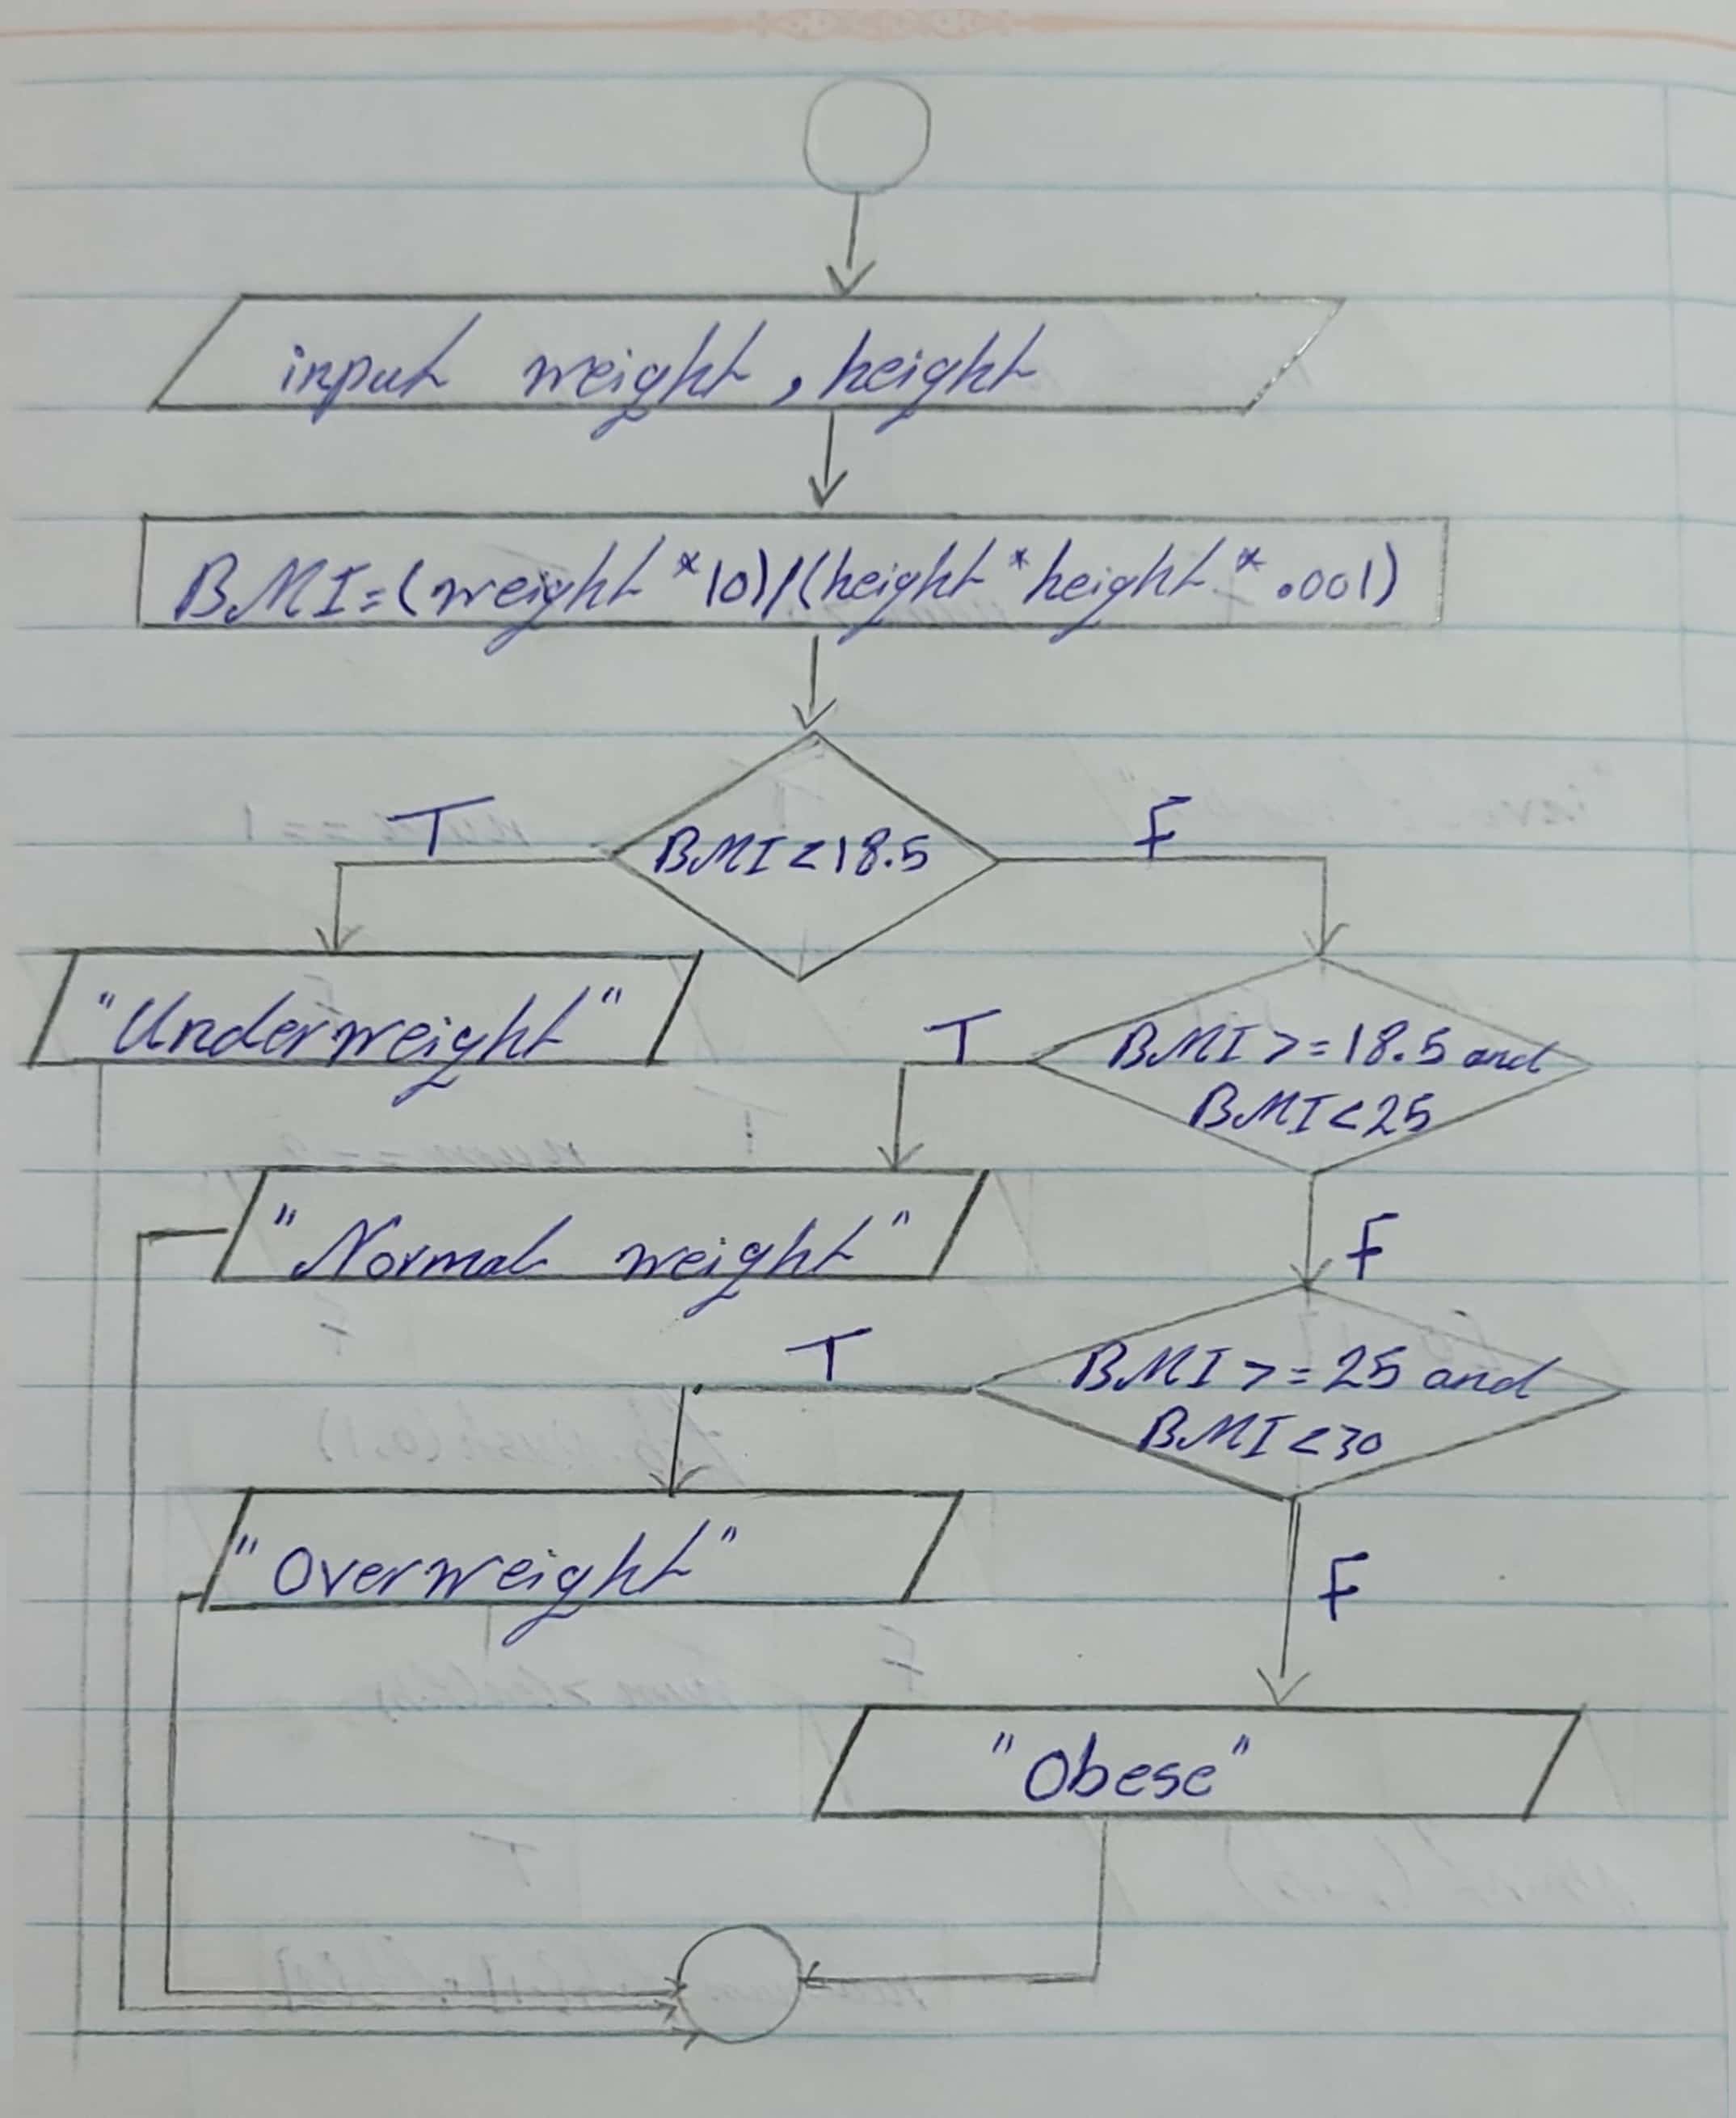 input weight, height
BMI=(weight*10)/(height*height*.001)
T
BMI<18.5
F
"Underweight"
T
BMI>=18.5 and
BMI<25
"Normal weight"
F
T
BMI>=25 and
BMI<30
"Overweight"
F
"Obese"